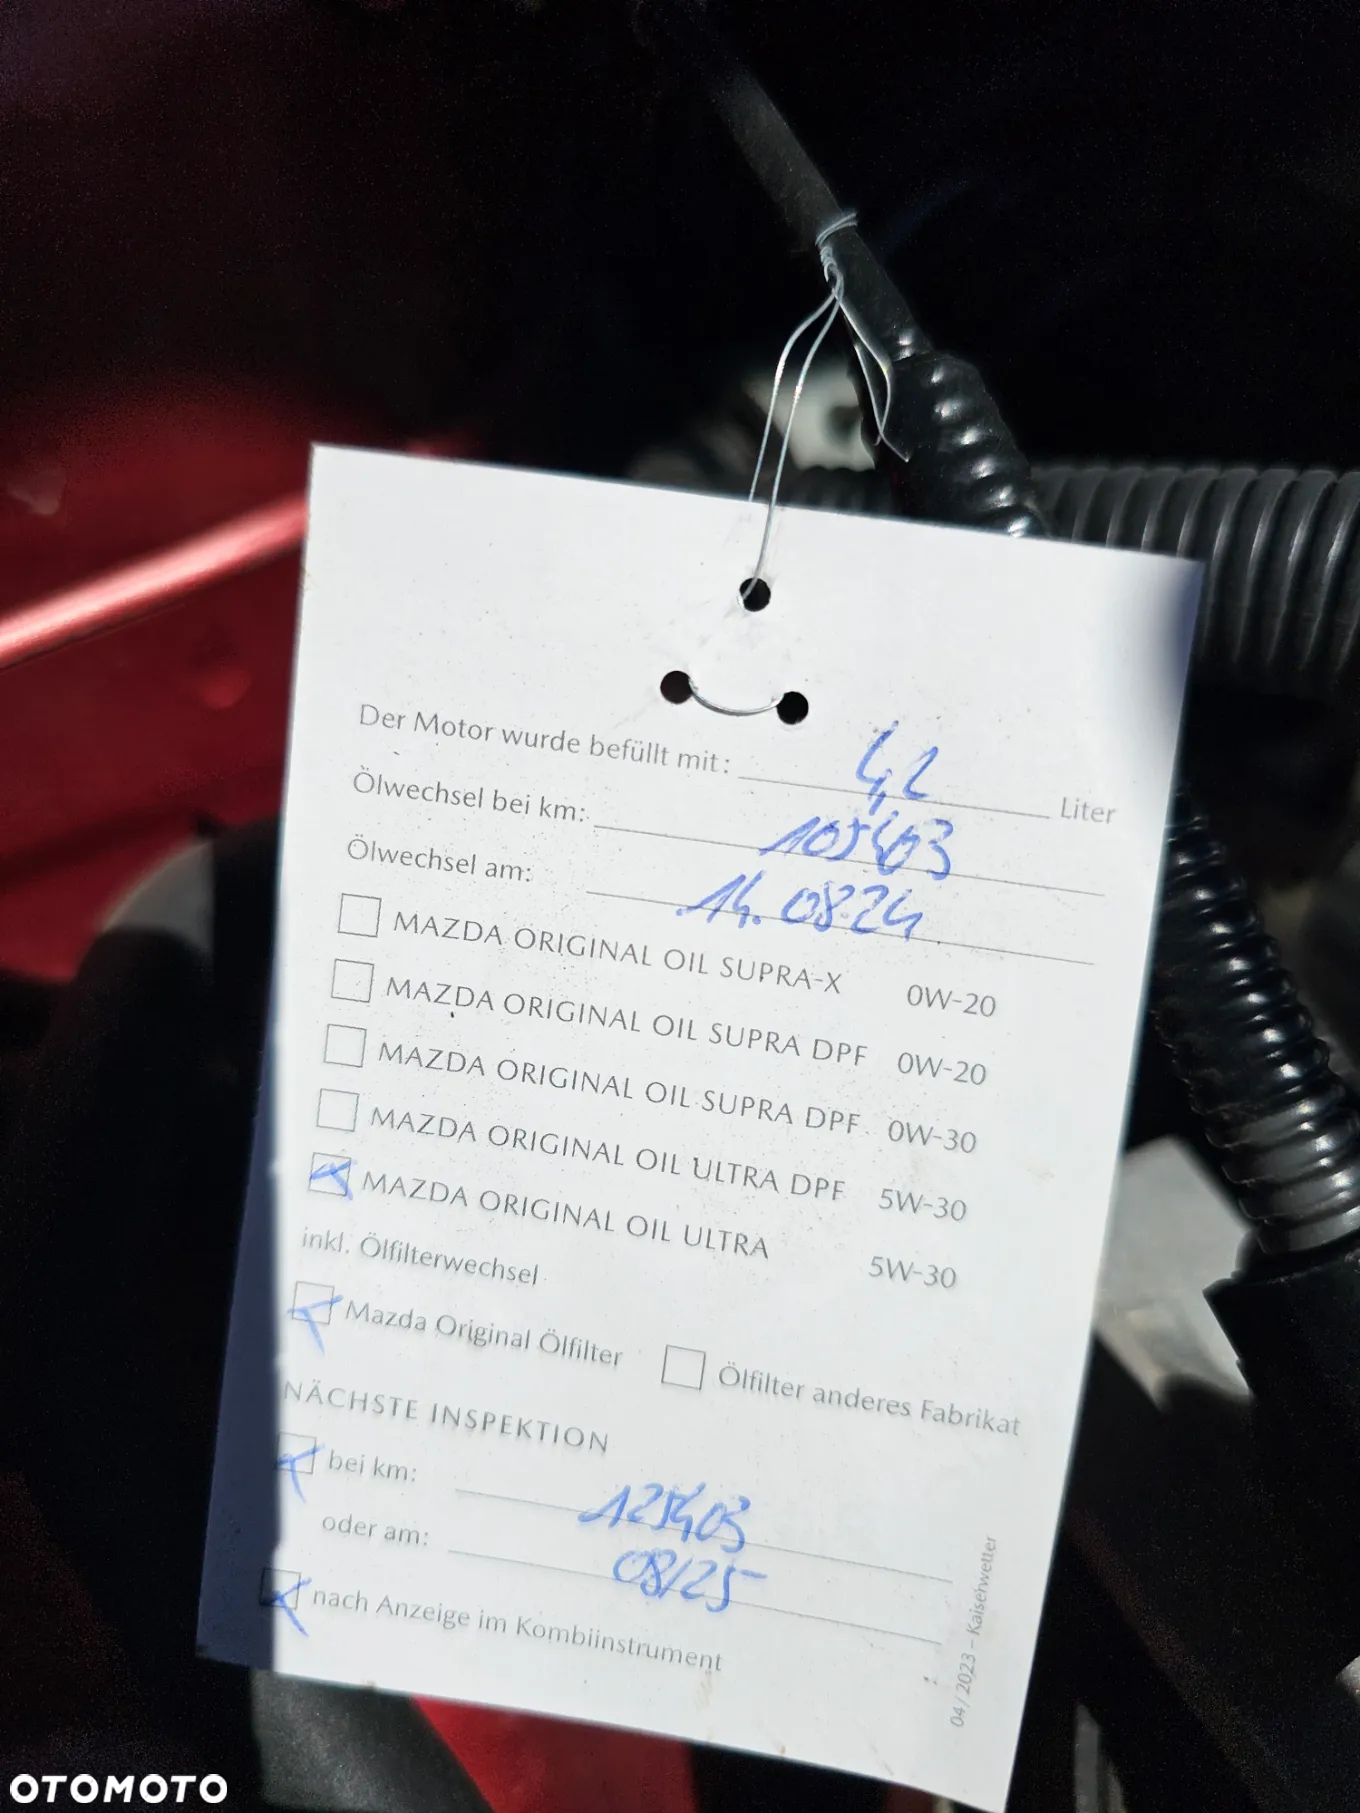 Der Motor wurde befüllt mit: 4,2 Liter
Ölwechsel bei km: 105403
Ölwechsel am: 14.08.24
MAZDA ORIGINAL OIL SUPRA-X 0W-20
MAZDA ORIGINAL OIL SUPRA DPF 0W-20
MAZDA ORIGINAL OIL SUPRA DPF 0W-30
MAZDA ORIGINAL OIL ULTRA DPF 5W-30
MAZDA ORIGINAL OIL ULTRA 5W-30
inkl. Ölfilterwechsel
Mazda Original Ölfilter Ölfilter anderes Fabrikat
NÄCHSTE INSPEKTION
bei km: 125403
oder am: 08/25
nach Anzeige im Kombiinstrument
04/2023 – Kaiserwetter
OTOMOTO